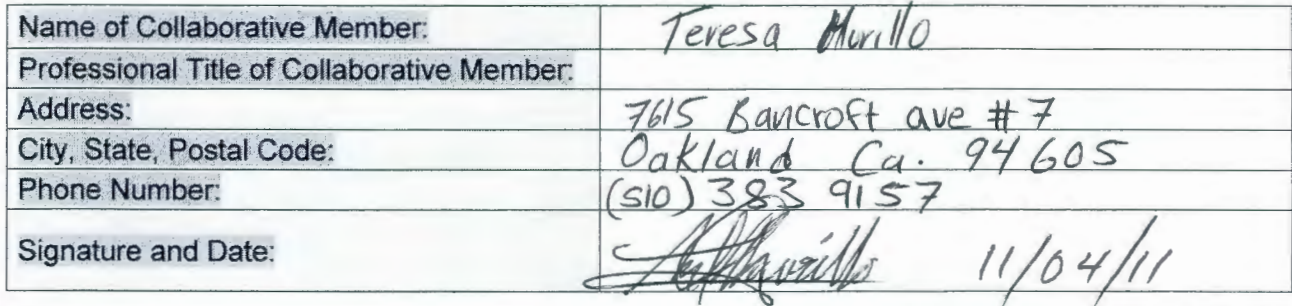 Name of Collaborative Member: Teresa Murillo
Professional Title of Collaborative Member:
Address: 7615 Bancroft ave # 7
City, State, Postal Code: Oakland Ca. 94605
Phone Number: (510) 383 9157
Signature and Date: 11/04/11